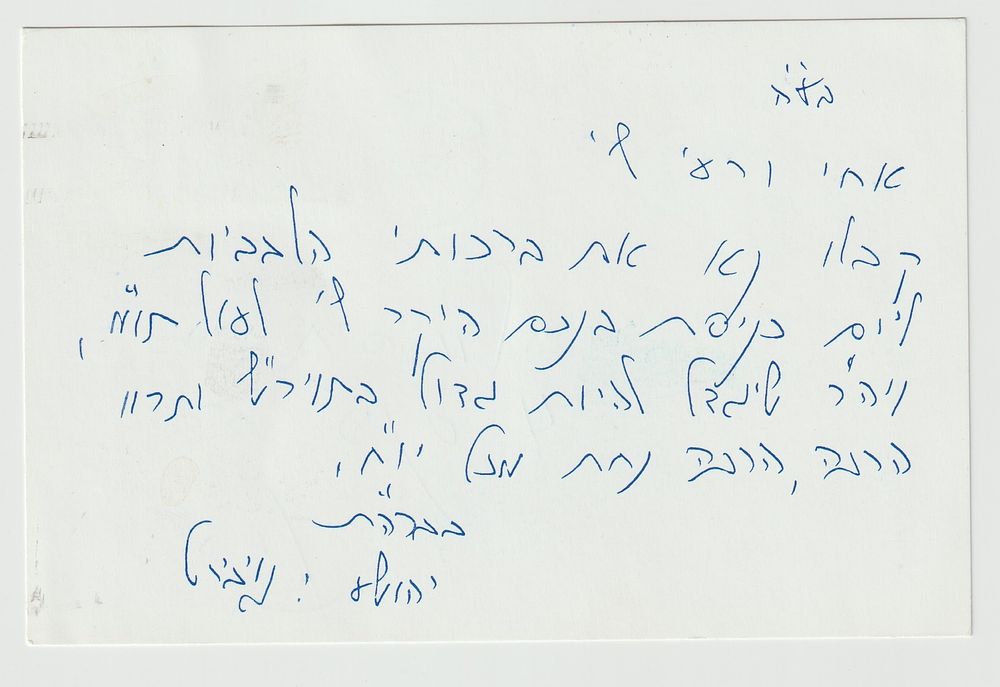 בע"ה
אחי ורעי שי'
קבלו נא את ברכותי הלבביות
ליום כניסת בנכם היקר שי' לעול תומ"צ,
ויה"ר שיגדל להיות גדול בתוירש ותרוו
הרבה, הרבה נחת מכל יו"ח.
בברה"ת
יהושע י. נויבירט